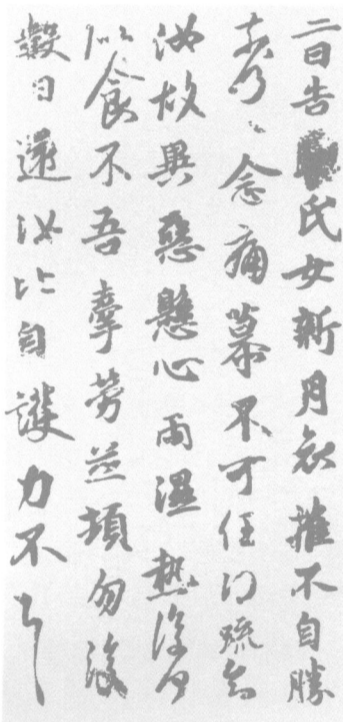 二日告氏女新月哀摧不自勝
奈何〻念痛慕不可任得疏知
汝故異惡懸心雨濕熱復何
似食不吾牽勞並頓勿復
數日還汝比自護力不